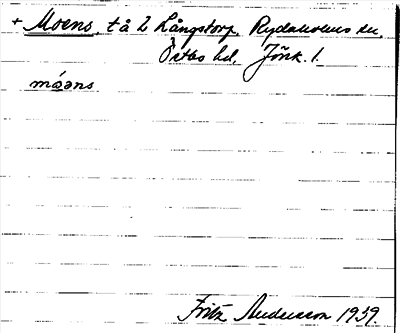 + Moens, t å L Långstorp, Rydaholms sn,
Östbo hd, Jönk. l.
móəns
Fritz Andersson 1939.